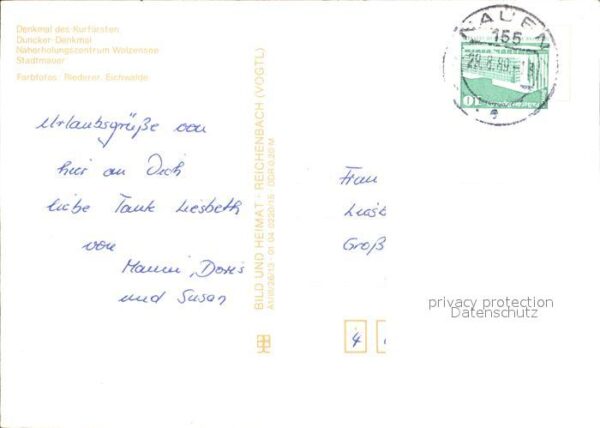 Denkmal des Kurfürsten
Duncker-Denkmal
Naherholungszentrum Wolzensee
Stadtmauer
Farbfotos: Riederer, Eichwalde
Urlaubsgrüße von
hier an Dich
liebe Tante Liesbeth
von
Manni, Doris
und Susan
BILD UND HEIMAT · REICHENBACH (VOGTL)
A1/III/26/13 · 01 04 0220/16 · DDR 0,20 M
NAUEN
155
10
Frau
Groß
4
privacy protection
Datenschutz